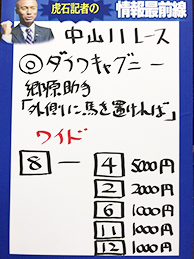 虎石記者の
情報最前線
中山11レース
◎ダイワキャグニー
郷原助手
「外側に馬を置ければ」
ワイド
8 — 4 5000円
2 2000円
6 1000円
11 1000円
12 1000円